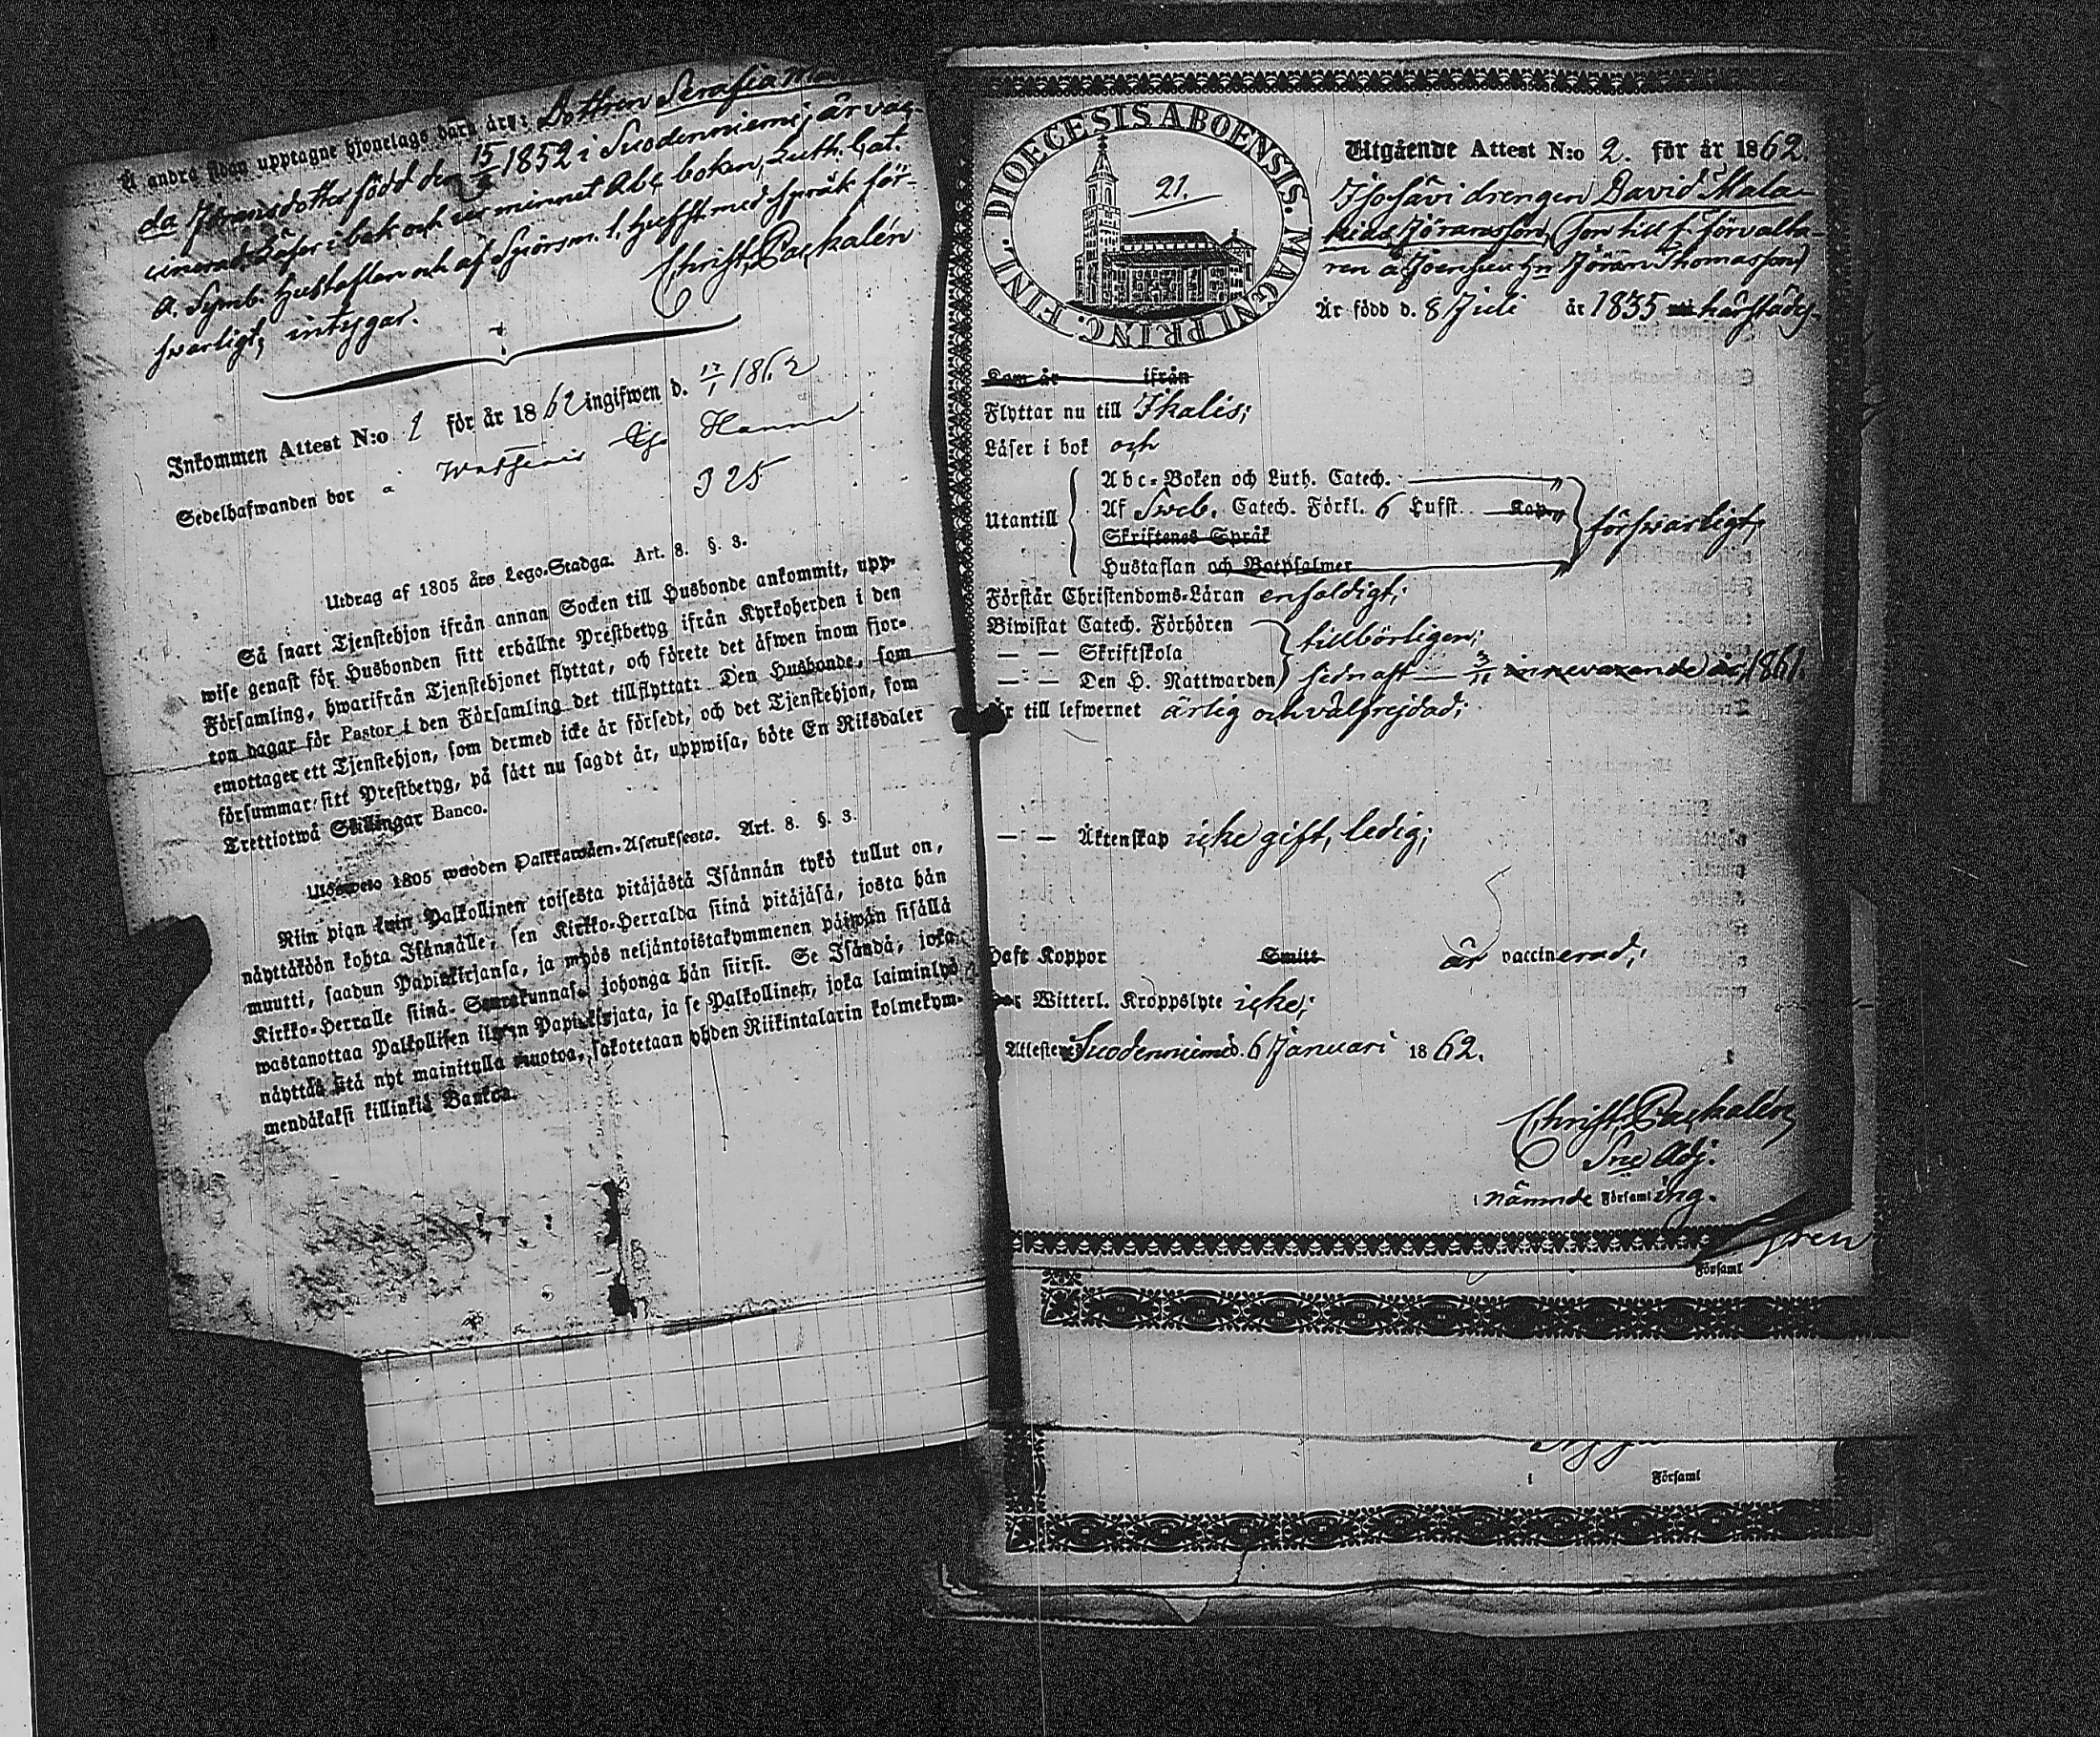 Å andra sidan upptagne hjonelags barn äro: Dottren Serafia
da Jöransdotter född den 15 1852 i Suodenniemi, är vac-
cinerad. Läser i bok och ur minnet Abc boken, Luth. Cat.
A. Symb. Hustaflan och af Spörsm. 1. Hufst. med språk för-
svarligt; intygar.
Christ. Paschalén
Inkommen Attest N:o 1 för år 1862 ingifwen d. 17/1 1862
Sedelhafwanden bor å
325
Utdrag af 1805 års Lego-Stadga. Art. 8. §. 3.
Så snart Tjenstehjon ifrån annan Socken till Husbonde ankommit, upp-
wise genast för Husbonden sitt erhållne Prestbetyg ifrån Kyrkoherden i den
Församling, hwarifrån Tjenstehjonet flyttat, och förete det äfwen inom fjor-
ton dagar för Pastor i den Församling det tillflyttat: Den Husbonde, som
emottager ett Tjenstehjon, som dermed icke är försedt, och det Tjenstehjon, som
försummar sitt Prestbetyg, på sätt nu sagdt är, uppwisa, böte En Riksdaler
Trettiotwå Skillingar Banco.
Ulosweto 1805 wuoden Palkkawäen-Asetuksesta. Art. 8. §. 3.
Niin pian kuin Palkollinen toisesta pitäjästä Isännän tykö tullut on,
näyttäköön kohta Isännälle, sen Kirkko-Herralda siinä pitäjäsä, josta hän
muutti, saadun Papinkirjansa, ja myös neljäntoistakymmenen päiwän sisällä
Kirkko-Herralle siinä Seurakunnasa johonga hän siirsi. Se Isändä, joka
wastanottaa Palkollisen ilman Papinkirjata, ja se Palkollinen, joka laiminlyö
näyttää sitä nyt mainitulla muotoa, sakotetaan yhden Riikintalarin kolmekym-
mendäkaksi killinkiä Bankoa.
DIOECESIS ABOENSIS. MAGNI PRINC. FINL.
21.
Utgående Attest N:o 2. för år 1862.
Isosävi drengen David Mala-
kias Jöransson, (son till f. förvalta-
ren å Joensuu Hr Jöran Thomasson)
Är född d. 8 Juli år 1835 härstädes.
Kom år ifrån
Flyttar nu till Ikalis;
Läser i bok och
Utantill
Abc-Boken och Luth. Catech.
Af Sweb. Catech. Förkl. 6 Hufst. Kap.
Skriftenes Språk
Hustaflan och Botpsalmer
försvarligt;
Förstår Christendoms-Läran enfaldigt;
Biwistat Catech. Förhören
— — Skriftskola
tillbörligen;
— — Den H. Nattwarden sednast — 3/11 innevarande år, 1861.
Är till lefwernet ärlig och välfrejdad;
— — Äktenskap icke gift, ledig;
Haft Koppor Smitt är vaccinerad;
Har Witterl. Kroppslyte icke;
Attesterar Suodenniemi d. 6 Januari 1862.
Christ. Paschalén
Sne Adj.
i nämnde Församling.
Församl
i Församl